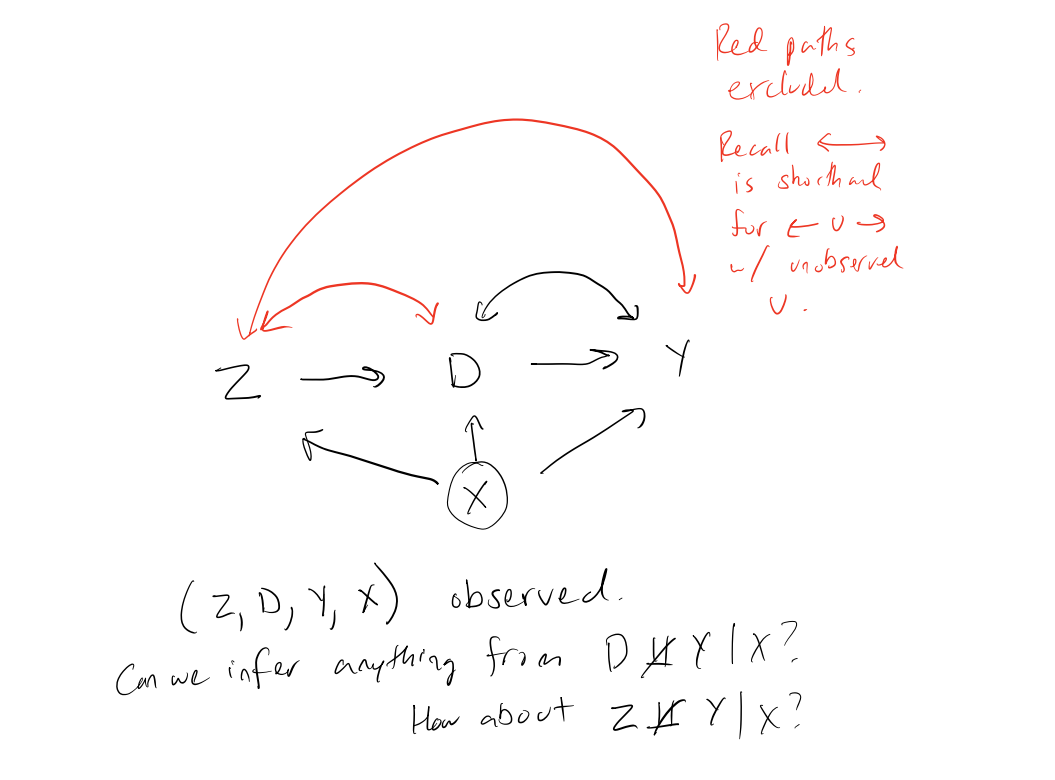 Red paths
excluded.
Recall ↔
is shorthand
for ← U →
w/ unobserved
U.
Z → D → Y
X
(Z, D, Y, X) observed.
Can we infer anything from D ⫫̸ Y | X?
How about Z ⫫̸ Y | X?